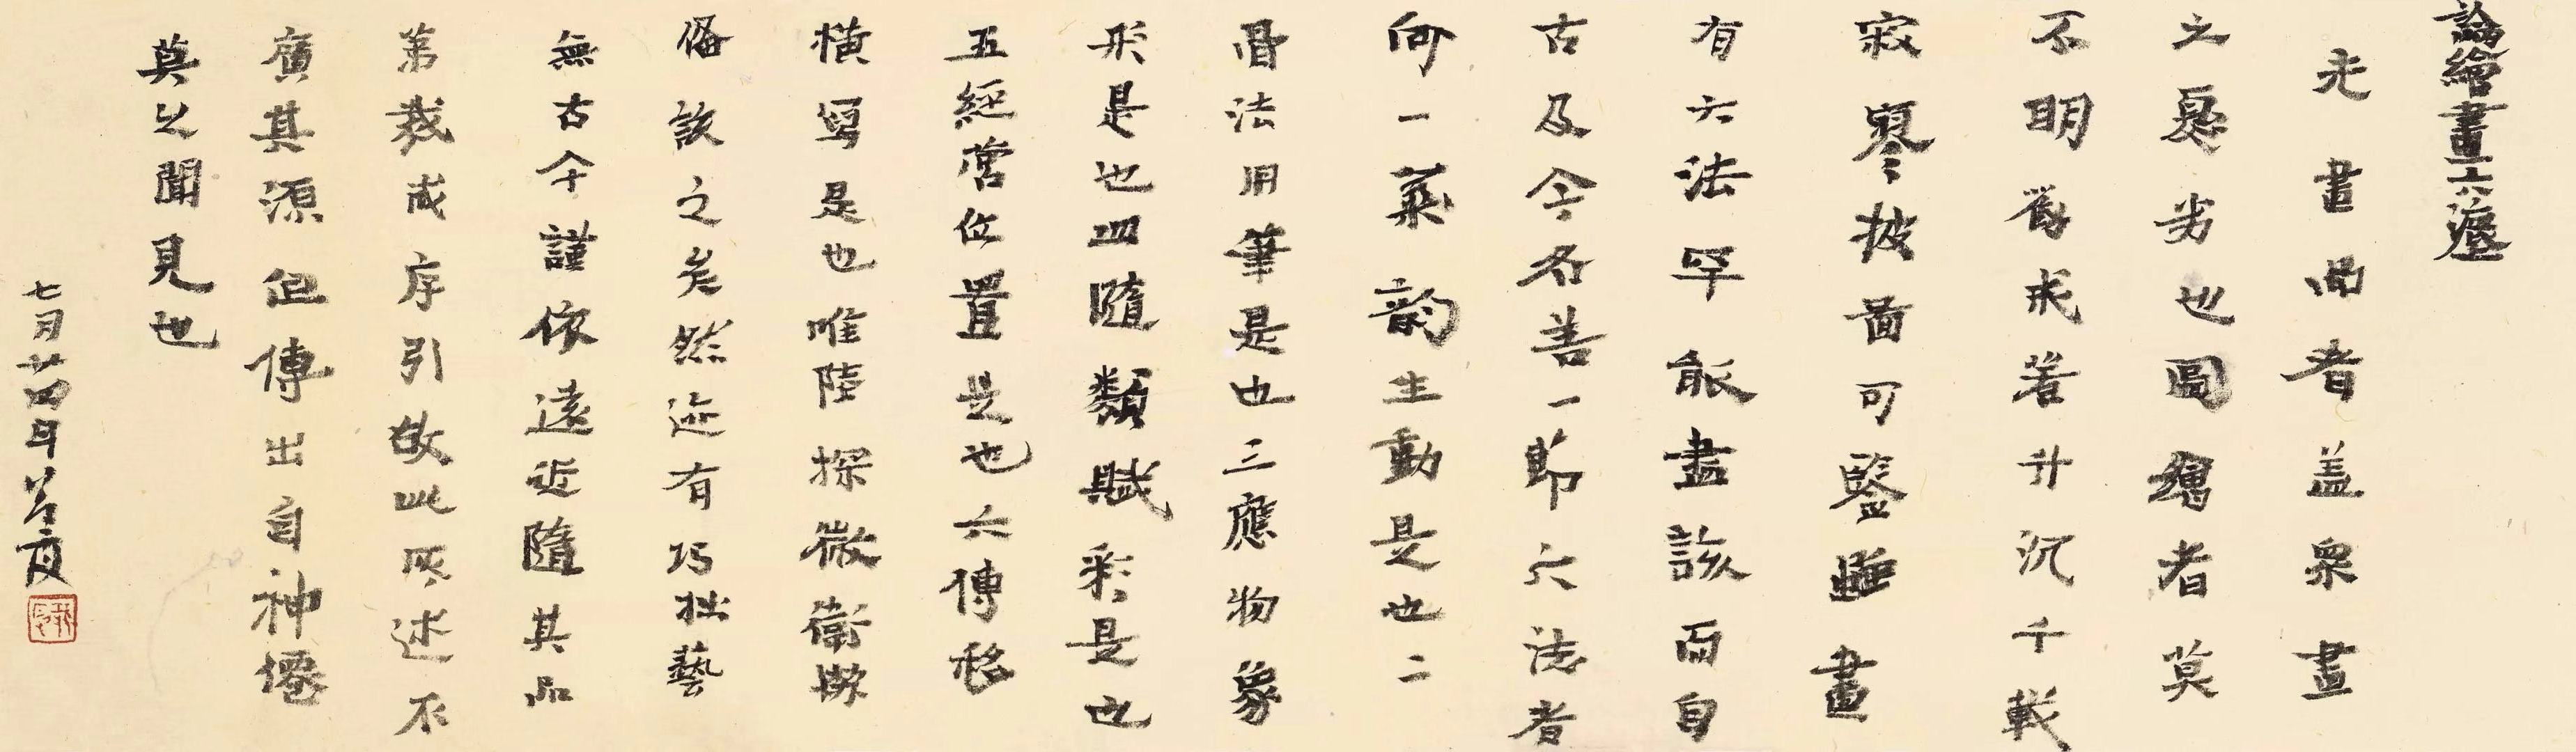 論繪畫六法
夫畫品者盖眾畫
之優劣也圖繪者莫
不明勸戒著升沉千載
寂寥披圖可鑒雖畫
有六法罕能盡該而自
古及今各善一節六法者
何一氣韵生動是也二
骨法用筆是也三應物象
形是也四隨類賦彩是也
五經營位置是也六傳移
横寫是也唯陸探微衛協
備該之矣然迹有巧拙藝
無古今謹依遠近隨其品
第裁成序引故此所述不
廣其源但傳出自神僊
莫之聞見也
七月廿四